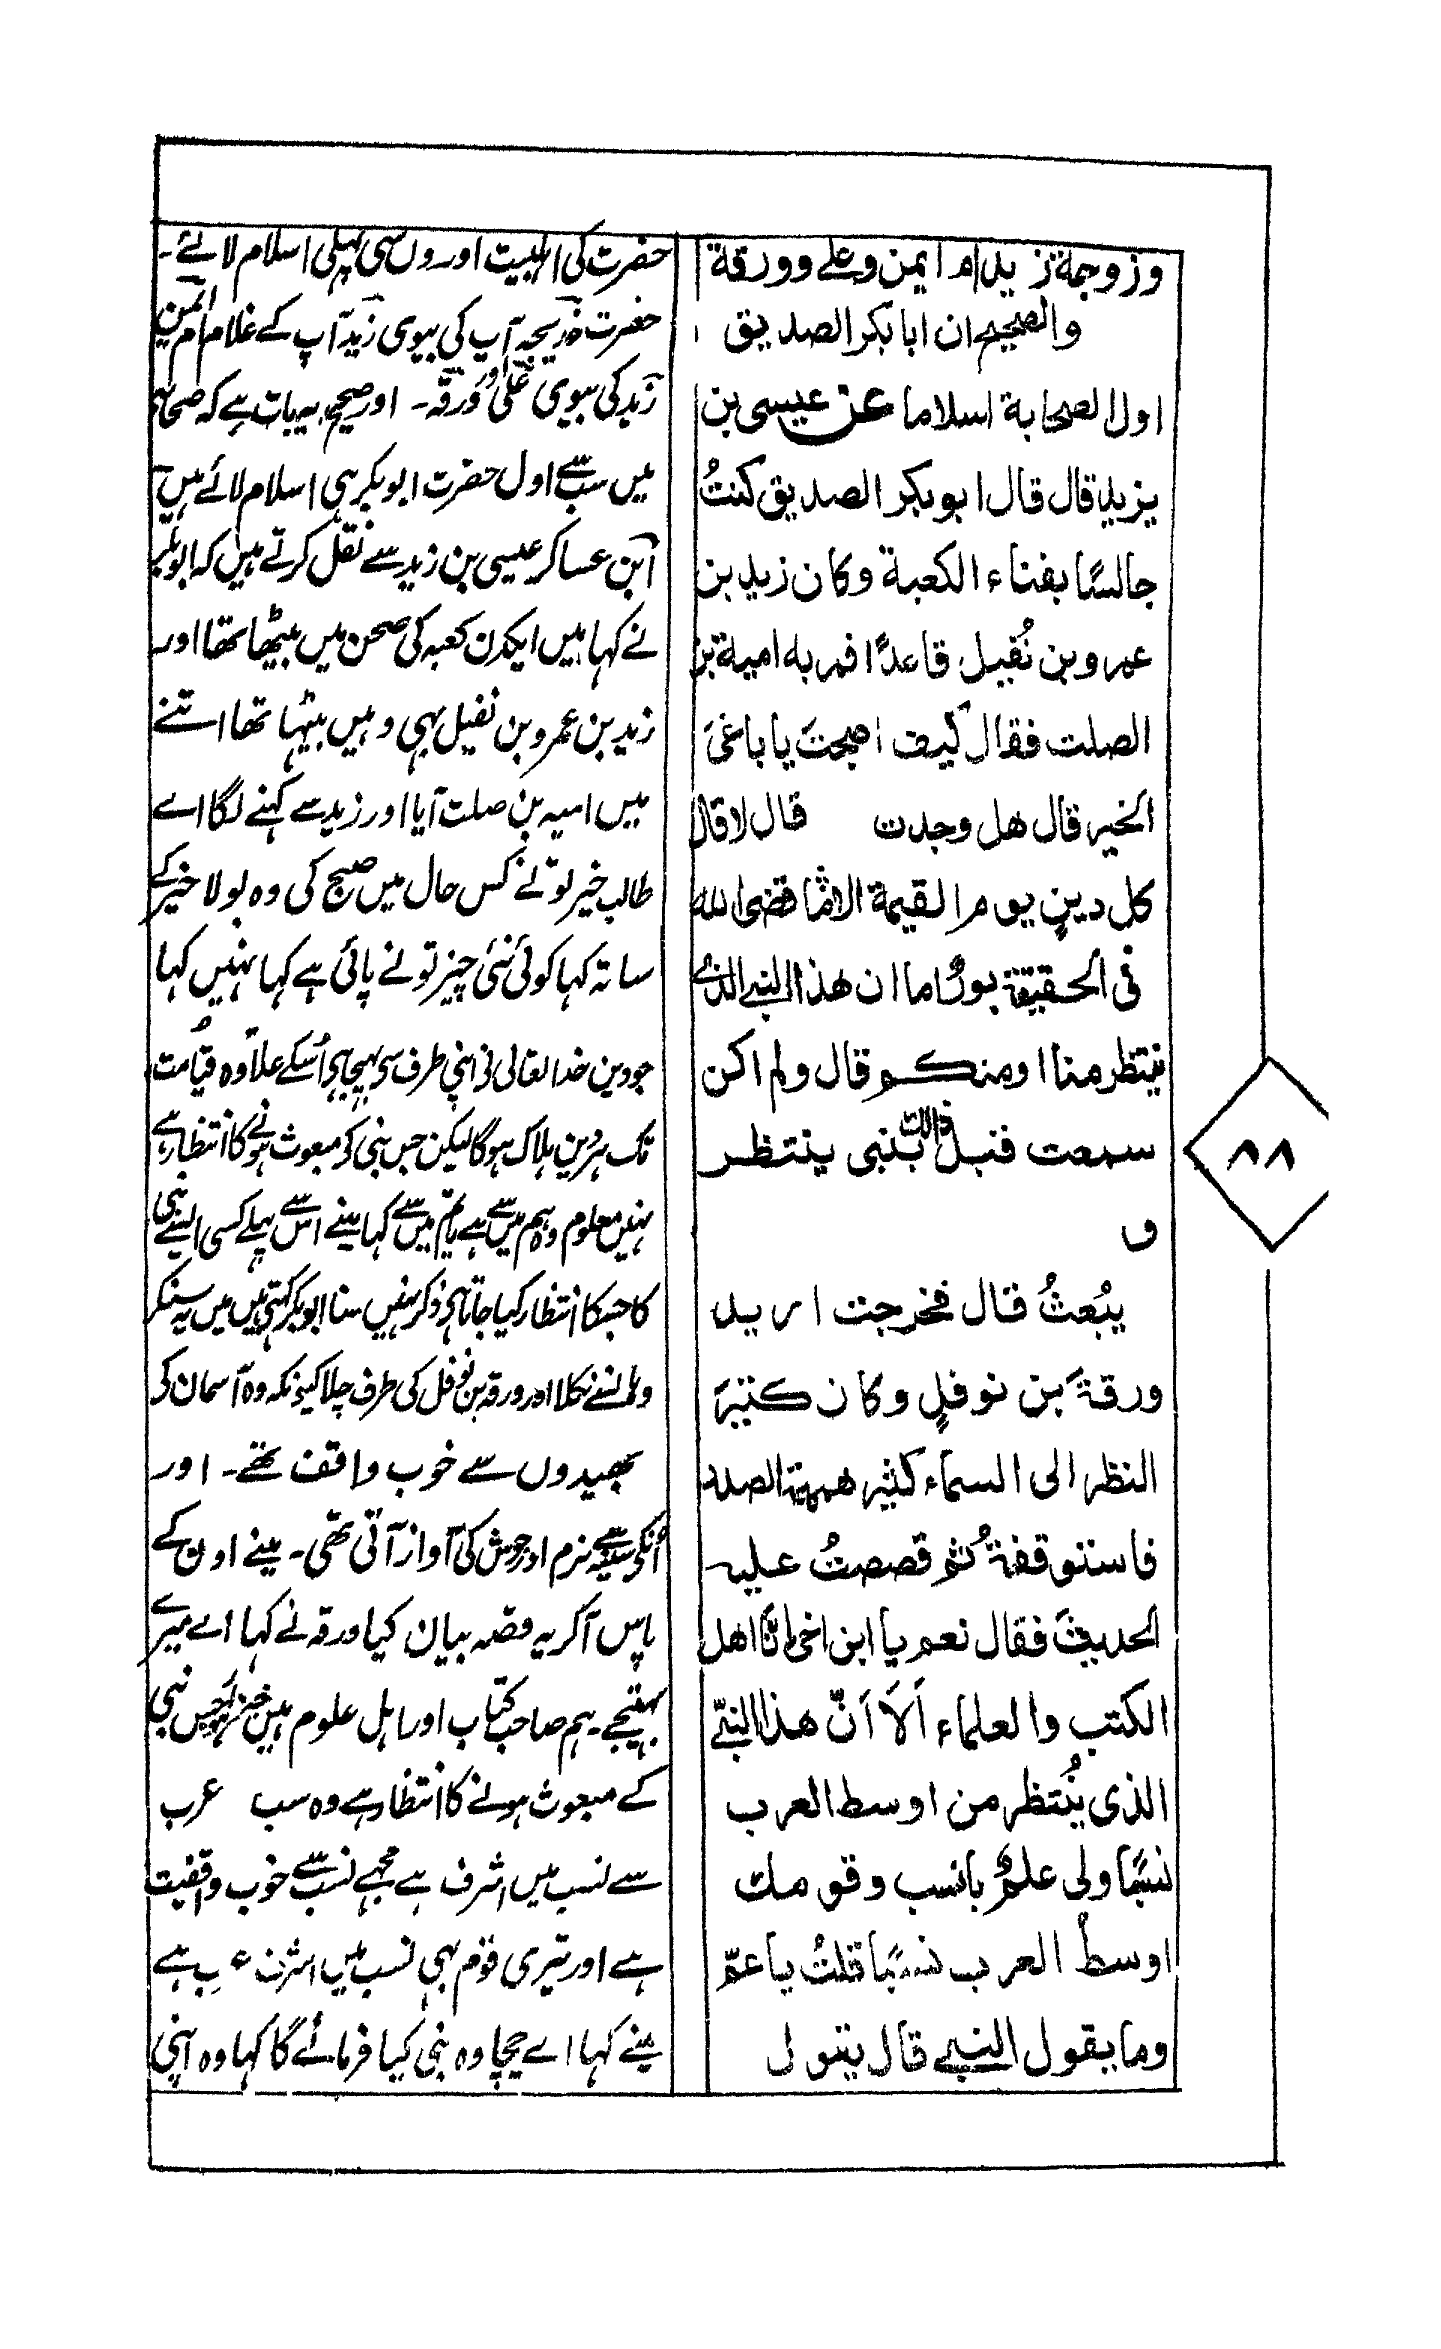 وزوجة زيد ام ايمن وعلي وورقة
والصحيح ان ابا بكر الصديق
اول الصحابة اسلاما عن عيسى بن
يزيد قال قال ابو بكر الصديق كنتُ
جالسًا بفناء الكعبة وكان زيد بن
عمرو بن نُفيل قاعدًا فمر به امية بن
الصلت فقال كيف اصبحتَ يا باغىَ
الخير قال هل وجدت قال لا قال
كل دينٍ يوم القيمة الا ما قضى الله
فى الحقيقة بورٌ اما ان هذا النبي الذي
ينتظر منا او منكم قال ولم اكن
سمعت قبل ذالك بنبى ينتظر
و
يبُعثُ قال فخرجت اريد
ورقةَ بن نوفلٍ وكان كثيرَ
النظر الى السماء كثير همهمة الصدر
فاستوقفةُ ثم قصصتُ عليه
الحديثَ فقال نعم يا ابن اخى انَّا اهل
الكتب والعلماء اَلاَ اَنّ هذا النبيّ
الذى يُنتظر من اوسط العرب
نسبًا ولى علمٌ بانسب وقومك
اوسط العرب نسبًا قلتُ يا عمّ
وما يقول النبي قال يقول
۸۸
حضرت کی اہلبیت اوروں سی پہلی اسلام لائے۔
حضرت خدیجہ آپ کی بیوی زید آپ کے غلام ام ایمن
زید کی بیوی علی اور ورقہ۔ اور صحیح یہ بات ہے کہ صحابہ
میں سب سے اول حضرت ابوبکر ہی اسلام لائے ہیں
ابن عساکر عیسی بن زید سے نقل کرتے ہیں کہ ابوبکر
نے کہا میں ایکدن کعبہ کی صحن میں بیٹھا تھا اور
زید بن عمرو بن نفیل بہی وہیں بیٹہا تھا اتنے
میں امیہ بن صلت آیا اور زید سے کہنے لگا اے
طالب خیر تو نے کس حال میں صبح کی وہ بولا خیر کے
ساتہ کہا کوئی نئی چیز تو نے پائی ہے کہا نہیں کہا
جو دین خدا تعالی نی اپنی طرف سی بہیجا ہی اُسکے علاوہ قیامت
تک ہر دین ہلاک ہو گا لیکن جس نبی کی مبعوث ہونے کا انتظار ہے
نہیں معلوم وہ ہم میں سے ہے یا تم میں سے کہا مینے اس سے پہلے کسی ایسے نبی
کا جسکا انتظار کیا جاتا ہی ذکر نہیں سنا ابوبکر کہتی ہیں میں یہ سنکر
وہاں سے نکلا اور ورقہ بن نوفل کی طرف چلا کیونکہ وہ آسمان کی
بھیدوں سے خوب واقف تھے۔ اور
اُنکی سینے سے نرم اور جوش کی آواز آتی تھی۔ مینے اون کے
پاس آکر یہ قصہ بیان کیا ورقہ نے کہا اے میرے
بہتیجے۔ ہم صاحب کتاب اور اہل علوم ہیں جس نبی
کے مبعوث ہونے کا انتظار ہے وہ سب عرب
سے نسب میں اشرف ہے مجھے نسب سے خوب واقفیت
ہے اور تیری قوم بہی نسب میں اشرف عرب ہے
مینے کہا اے چچا وہ نبی کیا فرمائے گا کہا وہ اپنی